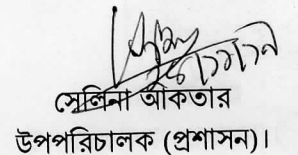 সেলিনা আকতার
উপপরিচালক (প্রশাসন)।